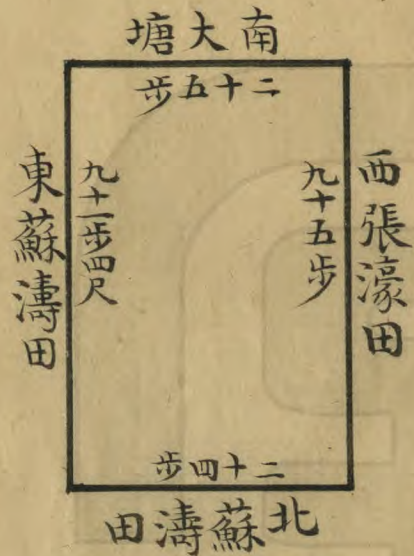 南大塘
二十五步
西張濠田
九十五步
九十一步四尺
東蘇濤田
二十四步
北蘇濤田